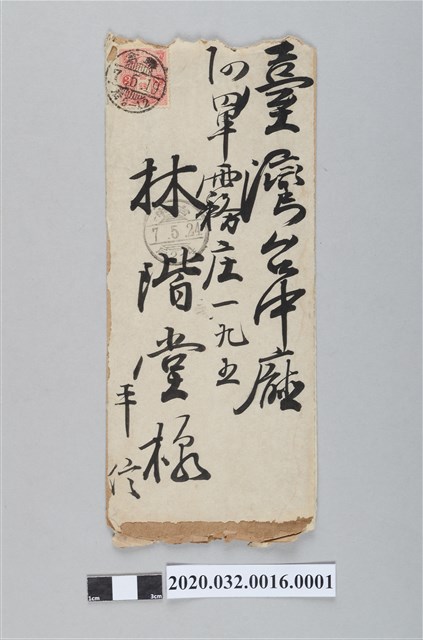 臺灣台中廳
阿罩霧庄一九五
林階堂様
平信
7.5.24
1cm
3cm
2020.032.0016.0001